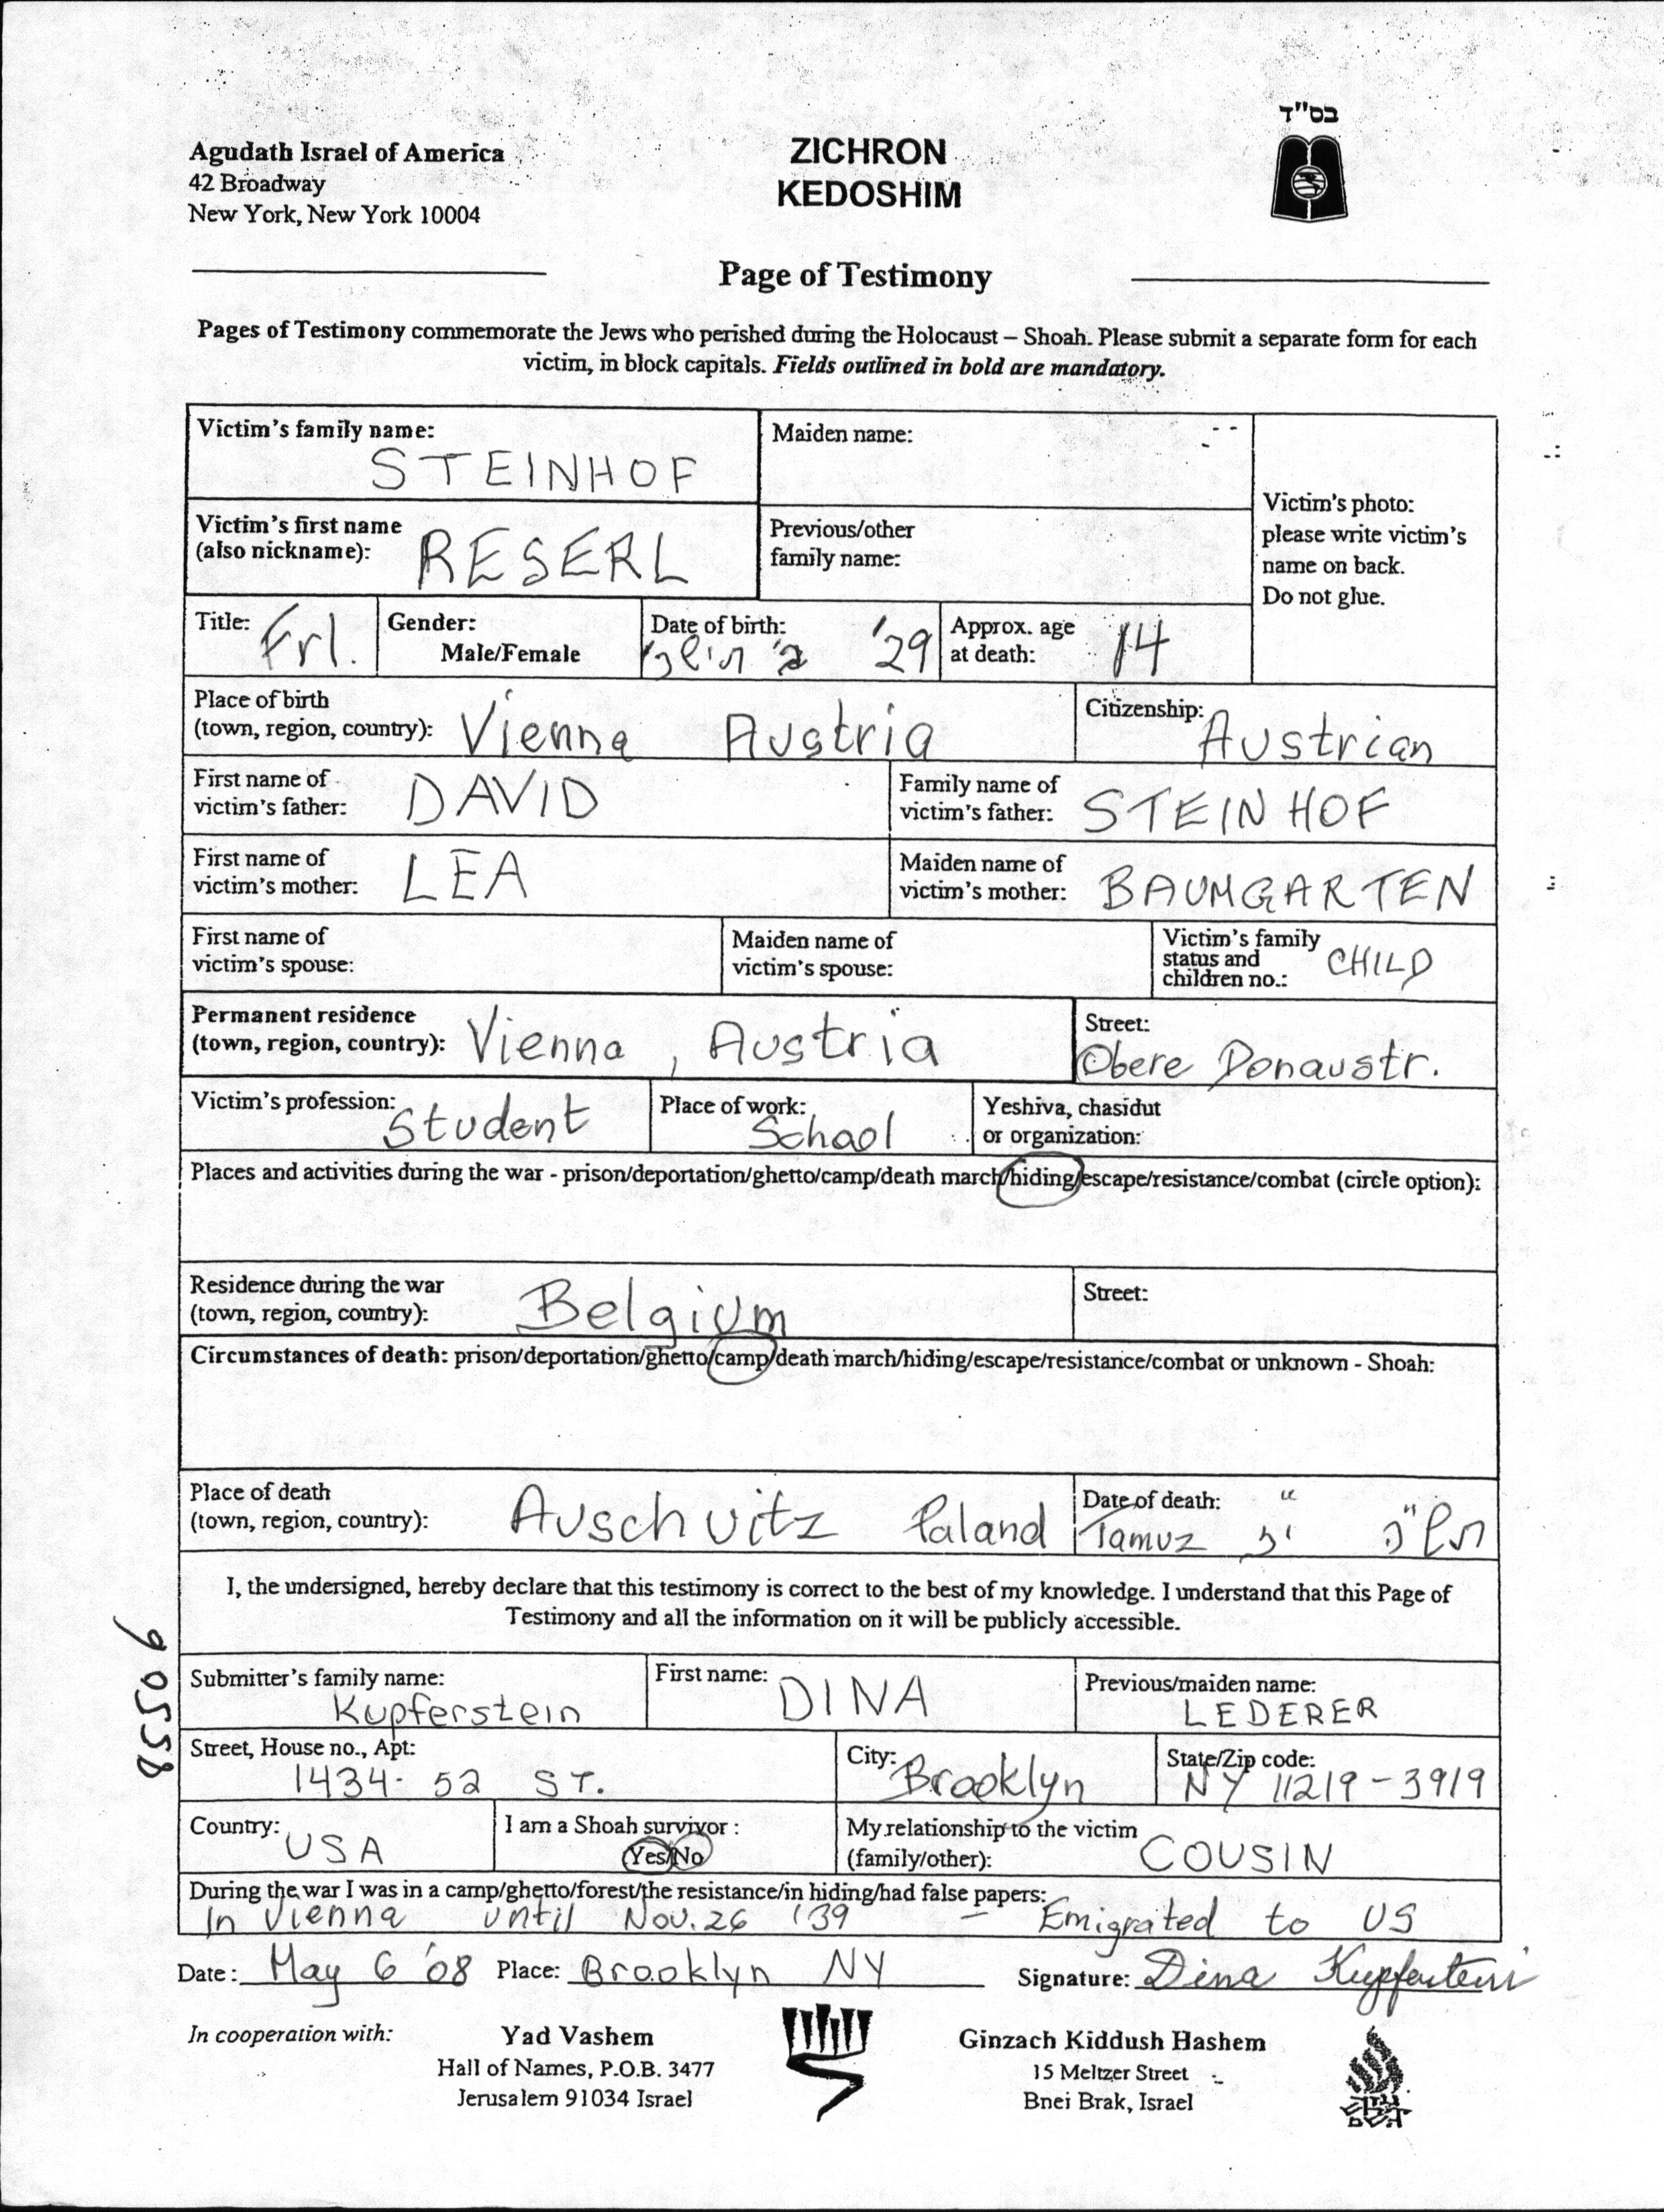 בס"ד
Agudath Israel of America
42 Broadway
New York, New York 10004
ZICHRON
KEDOSHIM
Page of Testimony
Pages of Testimony commemorate the Jews who perished during the Holocaust – Shoah. Please submit a separate form for each
victim, in block capitals. Fields outlined in bold are mandatory.
Victim's family name:
STEINHOF
Maiden name:
Victim's photo:
please write victim's
name on back.
Do not glue.
Victim's first name
(also nickname): RESERL
Previous/other
family name:
Title: Frl.
Gender:
Male/Female
Date of birth:
'29
Approx. age
at death: 14
Place of birth
(town, region, country): Vienna Austria
Citizenship: Austrian
First name of
victim's father: DAVID
Family name of
victim's father: STEINHOF
First name of
victim's mother: LEA
Maiden name of
victim's mother: BAUMGARTEN
First name of
victim's spouse:
Maiden name of
victim's spouse:
Victim's family
status and
children no.: CHILD
Permanent residence
(town, region, country): Vienna, Austria
Street:
Obere Donaustr.
Victim's profession: Student
Place of work:
School
Yeshiva, chasidut
or organization:
Places and activities during the war - prison/deportation/ghetto/camp/death march/hiding/escape/resistance/combat (circle option):
Residence during the war
(town, region, country): Belgium
Street:
Circumstances of death: prison/deportation/ghetto/camp/death march/hiding/escape/resistance/combat or unknown - Shoah:
Place of death
(town, region, country): Auschvitz Poland
Date of death:
Tamuz
I, the undersigned, hereby declare that this testimony is correct to the best of my knowledge. I understand that this Page of
Testimony and all the information on it will be publicly accessible.
90558
Submitter's family name:
Kupferstein
First name: DINA
Previous/maiden name:
LEDERER
Street, House no., Apt:
1434- 52 ST.
City: Brooklyn
State/Zip code:
NY 11219-3919
Country: USA
I am a Shoah survivor :
Yes/No
My relationship to the victim
(family/other): COUSIN
During the war I was in a camp/ghetto/forest/the resistance/in hiding/had false papers:
In Vienna until Nov. 26 '39 – Emigrated to US
Date: May 6 '08 Place: Brooklyn NY Signature: Dina Kupferstein
In cooperation with:
Yad Vashem
Hall of Names, P.O.B. 3477
Jerusalem 91034 Israel
Ginzach Kiddush Hashem
15 Meltzer Street
Bnei Brak, Israel